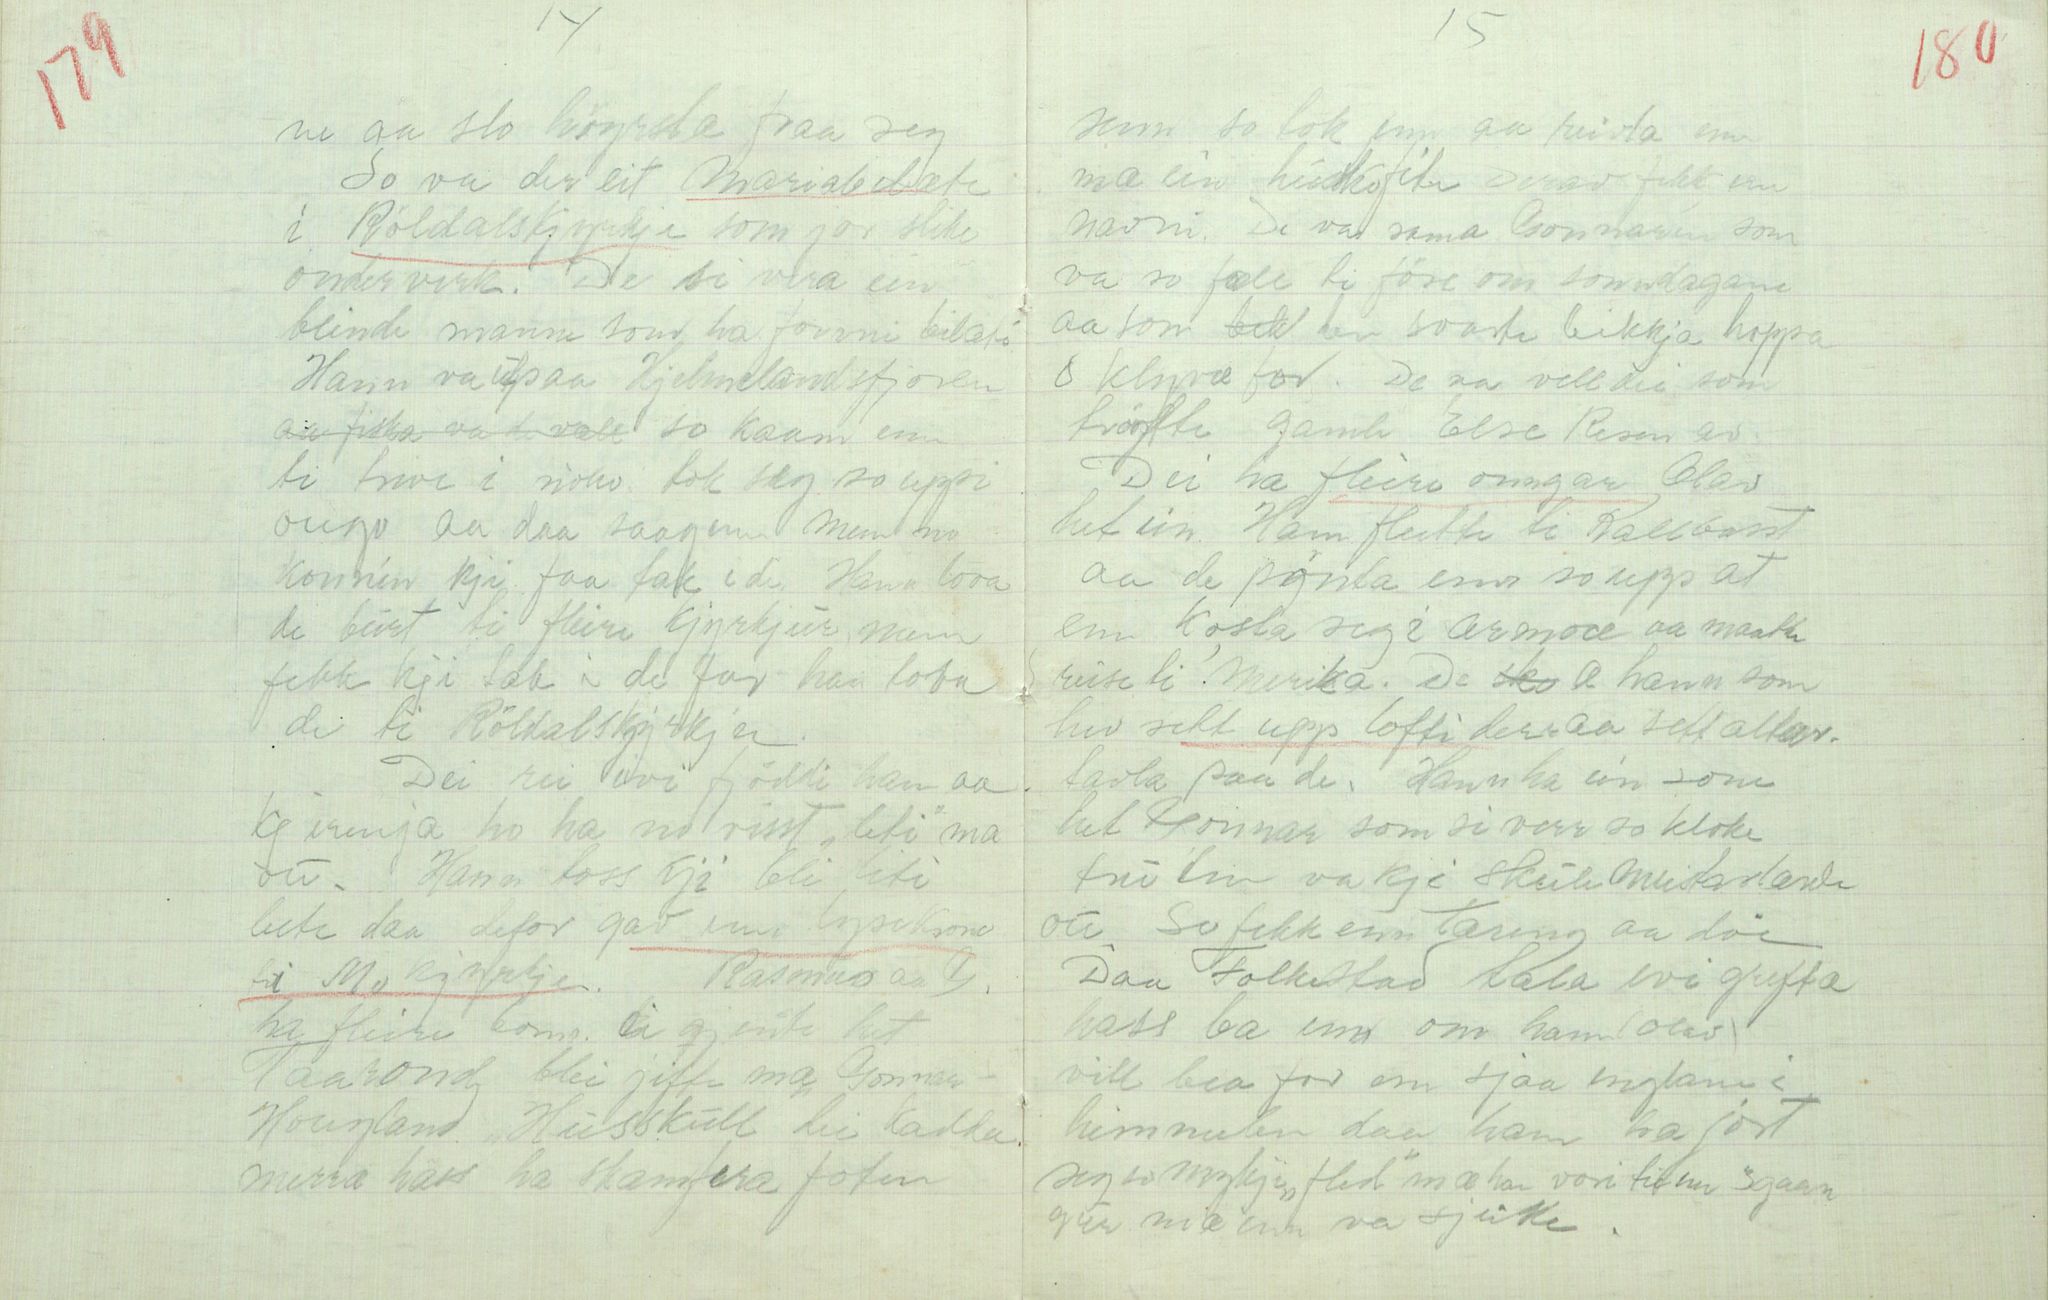 179
14
ne aa slo högrsla fraa seg
So va der eit Mariabelæte
i Röldalskjyrkje som jor slike
onderverk. De si vera ein
blinde mann som ha fonni bilæti
Hann va utpaa Hjelmelandsfjoren
aa fiska va de vall so kaam enn
ti trive i noko tok seg so uppi
ougo aa daa saag enn Menn no
konn'en kji faa tak i de. Hann lova
de burt ti fleire kjyrkjur, menn
fekk kji tak i de for han lova
de ti Röldalskjyrkje.
Dei rei ivi fjödde han aa
kjeringa ho ha no visst „leti" ma
ou. Hann toss kji bli liti
betr daa defor gav enn lysekrone
ti Mo kjyrkje. Rasmus aa G.
ha fleire bonn. Ei gjente het
Taarond, blei gifte mæ Gonnar
Hougland. „Husskull" dei kadla
merra hass ha skamfera foten
15
180
senn so tok enn aa reivla enn
mæ ein hudkofte derav fekk enn
navni. De va sama Gonnaren som
va so fæle ti före om sonndagane
aa som bek en svarte bikkja hoppa
o klyve for. De va vell dei som
gamle Else Resen av.
Dei ha fleire onngar Olav
het ein. Hann flutte ti Kallbast
aa de pynta enn so upp at
enn kosta seg i armoe aa maatte
reise ti 'Merika. De sko æ hann som
hev sett upp lofti der aa sett altar-
tavla paa de. Hann ha ein sone
het Gonnar som si verr so kloke
trutin va kji skulemeistarlærde
ou. So fekk enn tæring aa döe
Daa Folkestad tala ivi grefta
hass ba enn om hann (Olav)
vill bea for em sjaa englane i
himmelen daa hann ha jort
seg so mykje „flid" mæ han vori ti en "Sgaangur mæ enn va sjuke.